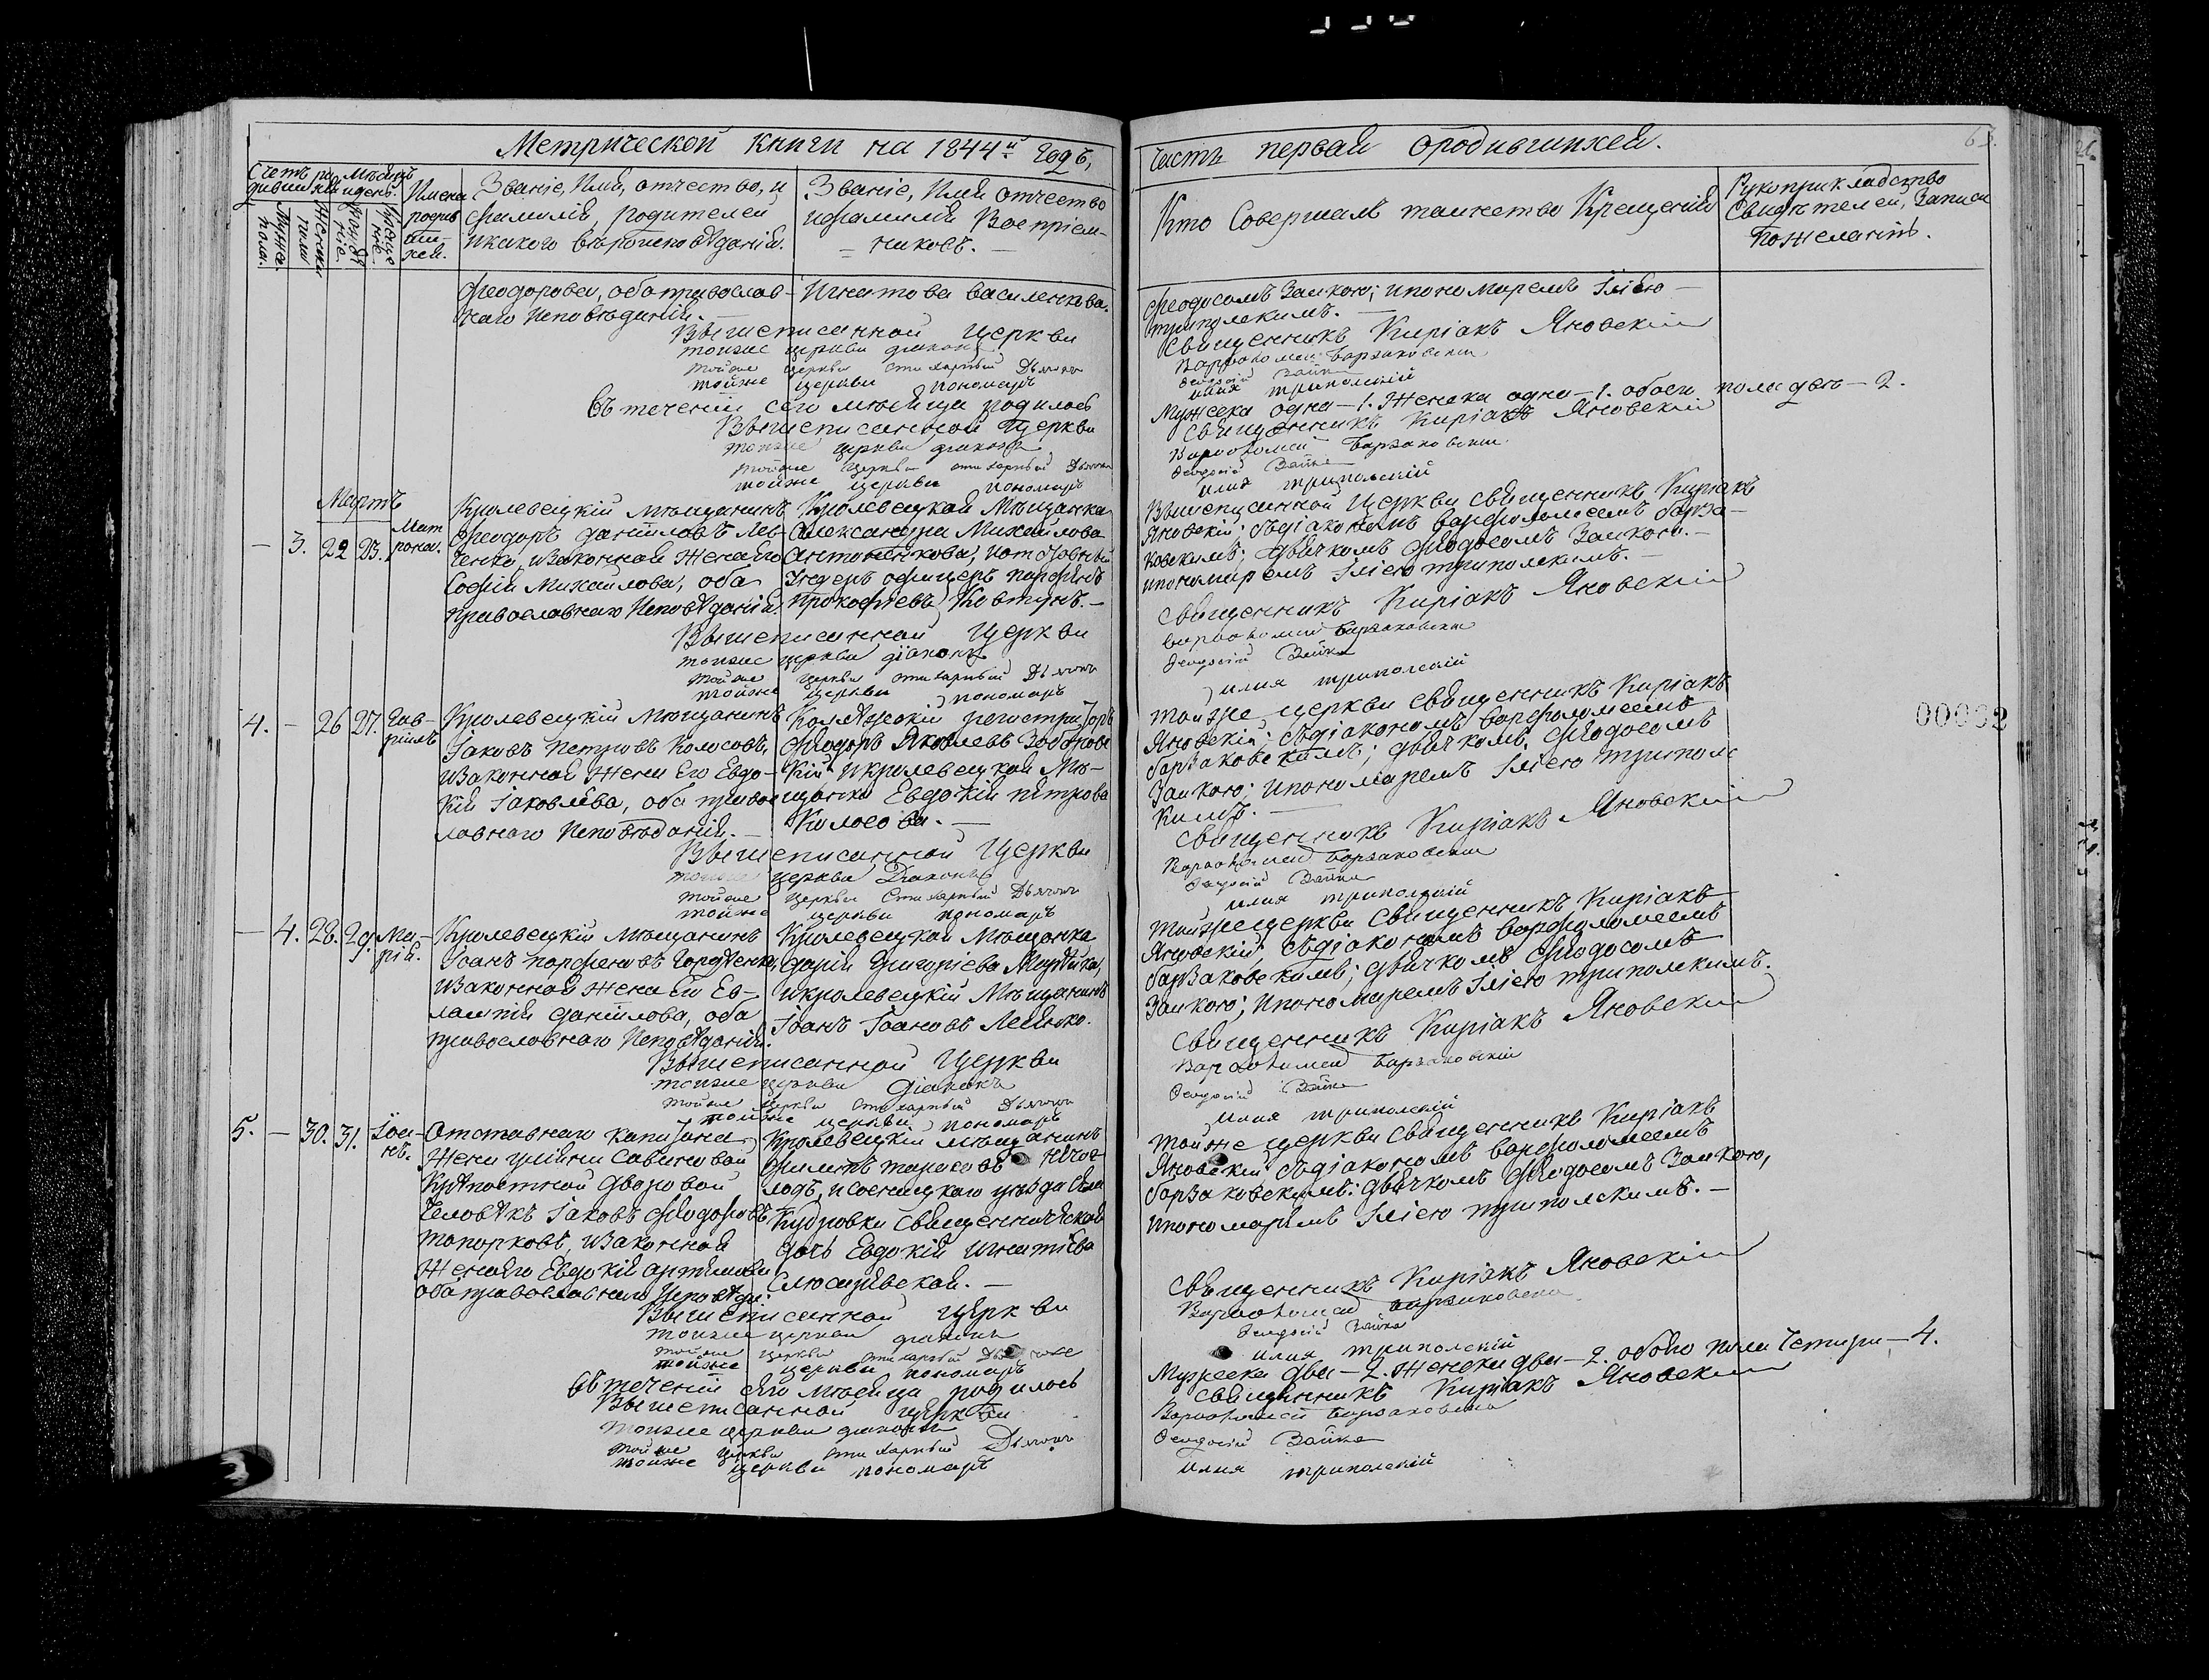 Метрической книги на 1844й годъ,
Счетъ родившихся
Мѣсяцъ и день
Мужеска пола.
Женска пола
Рожденія
Крещенія
Имена родившихся.
Званіе, Имя, отчество, и
фамилія, родителей
и какого вѣроисповѣданія.
Званіе, Имя отчество
и фамилія Воспріем-
никовъ.
Феодорова, оба православ-
наго Исповѣданія.
Игнатова Василенкова.
Вышеписанной Церкви
тоиже церкви диаконъ
тойже Церкви стихарный Дьячокъ
тойже церкви пономарь
Въ теченіи сего мѣсяца родилось
Вышеписанной Церкви
тоиже церкви диаконъ
тойже Церкви стихарный Дьячокъ
тойже церкви пономарь
Мартъ
— 3. 22 23. Мат-
рона.
Кролевецкій мѣщанинъ
Феодоръ Даніиловъ Лев-
ченко, и Законная жена его
Софія Михайлова, оба
православнаго Исповѣданія
Кролевецкая Мѣщанка
Александра Михайлова
Антоненкова, и отставный
Ундеръ офицеръ Парфенъ
Прокофіевъ Ковтунъ.—
Вышеписанной Церкви
тоиже церкви діаконъ
тойже Церкви стихарный Дьячокъ
тойже церкви пономарь
4. — 26 27. Гав-
ріилъ
Кролевецкій Мѣщанинъ
Іаковъ Петровъ Колосовъ,
и Законная жена Его Евдо-
кія Іаковлева, оба правос
лавнаго Исповѣданія.—
Коллежскій регистраторъ
Феодоръ Яковлевъ
кій и кролевецкая Мѣ-
щанка Евдокія петрова
Колосова.—
Вышеписанной Церкви
тоиже церкви Диаконъ
тойже Церкви Стихарный Дьячокъ
тойже церкви пономарь
— 4. 28. 29. Ма-
рія.
Кролевецкій мѣщанинъ
Іоанъ Парфеновъ
и Законная жена его Ев-
лампія Даніилова, оба
православнаго Исповѣданія.
Кролевецкая Мѣщанка
Дарія Григоріева
и кролевецкій Мѣщанинъ
Іоанъ Іоановъ
Вышеписанной Церкви
тоиже церкви діаконъ
тойже Церкви стихарный Дьячокъ
тойже церкви пономарь
5. — 30. 31. Іоа-
нъ.
Отставнаго капитана
жены Савиновой
Крѣпостной дворовой
человѣкъ Іаковъ Феодоровъ
топорковъ, и Законная
жена его Евдокія
оба православнаго Исповѣда:
Кролевецкій мѣщанинъ
Филипъ тарасовъ
и Сосницкаго уѣзда Села
Кудровки Священническая
дочь Евдокія Игнатіева
Вышеписанной Церкви
тоиже церкви диаконъ
тойже Церкви стихарный
тойже церкви пономарь
Въ теченіи сего мѣсяца родилось
Вышеписанной Церкви
тоиже церкви диаконъ
тойже Церкви стихарный Дьячокъ
тойже церкви пономарь
Часть первая о родившихся.
Кто Совершалъ таинство Крещенія
Рукоприкладство
Свидѣтелей, Записи
По желанію.
Феодосомъ Заикою; и пономаремъ Іліею
триполскимъ.
Священникъ Киріакъ Яновскій
Варфоломей Барзаковскій
Феодосій Заика
илия триполскій
Мужеска одна—1. Женска одна—1. обоего пола две—2.
Священникъ Киріакъ Яновскій
Варфоломей Барзаковскій
Феодосій Заика
илия триполскій
Вышеписанной Церкви Священникъ Киріакъ
Яновскій; съ діакономъ Варфоломеемъ Барза-
ковскимъ; дьячкомъ Феодосомъ Заикою.—
и пономаремъ Іліею триполскимъ.—
Священникъ Киріакъ Яновскій
Варфоломей Барзаковскій
Феодосій Заика
илия триполскій
тойже церкви Священникъ Киріакъ
Яновскій; съ діакономъ Варфоломеемъ
барзаковскимъ; дьячкомъ Феодосомъ
Заикою; и пономаремъ Іліею триполс
кимъ.—
Священникъ Киріакъ Яновскій
Варфоломей Барзаковскій
Феодосій Заика
илия триполскій
тойже церкви Священникъ Киріакъ
Яновскій; съ діакономъ Варфоломеемъ
барзаковскимъ; дьячкомъ Феодосомъ
Заикою; и пономаремъ Іліею триполскимъ.
Священникъ Киріакъ Яновскій
Варфоломей Барзаковскій
Феодосій Заика
илия триполскій
тойже церкви Священникъ Киріакъ
Яновскій съ діакономъ Варфоломеемъ
барзаковскимъ: дьячкомъ Феодосомъ Заикою,
и пономаремъ Іліею триполскимъ.—
Священникъ Киріакъ Яновскій
Варфоломей Барзаковскій
Феодосій Заика
илия триполскій
Мужеска два—2. Женска два—2. обоего пола Четыри—4.
Священникъ Киріакъ Яновскій
Варфоломей Барзаковскій
Феодосій Заика
илия триполскій
00002